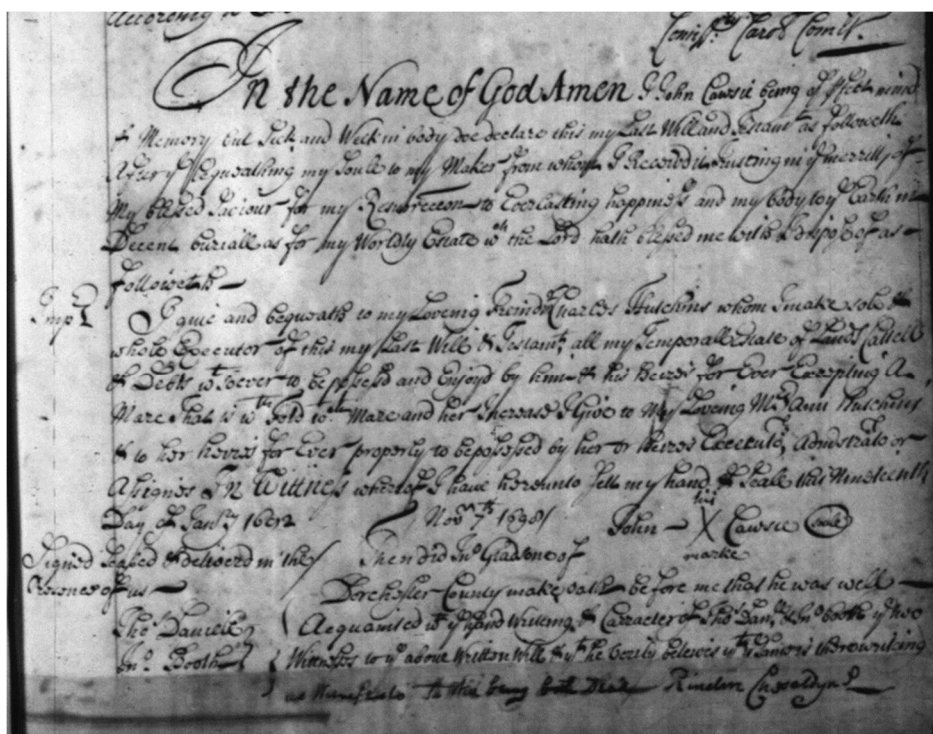 According to
Comiss.ry Carol Comit.
In the Name of God Amen I John Cawsie being of pfect mind
& Memory but Sick and Weck in body doe declare this my Last Will and Testamt as followeth
After ye Bequeathing my Soule to my Maker from whom I Received it trusting in ye merritts of
My blessed Saviour for my Resurrecon to Everlasting happiness and my body to ye Earth in
Decent buriall as for my Worldly Estate wch the Lord hath blessed me with I dispose of as
followeth
Imp
I give and bequeath to my Loveing Freind Charles Hutchins whom I make sole &
whole Executor of this my Last Will & Testamt, all my Temporall Estate of Lands Cattell
& Debts wtsoever to be possesd and Enjoyd by him & his heires for Ever Excepting A
Mare that is wth Fold wch Mare and her Increase I Give to My Loveing Mrs Ann Hutchins
& to her heires for Ever properly to be possessed by her or heires Executors, Administrators or
Assignes In Wittness whereof I have hereunto Sett my hand & Seale this Nineteenth
Day of Janry 1692 Novr 7th 1698 John his X Cawsie seale
marke
Signed Sealed & delivered in the Then did Jno Gladson of
Presence of us Dorchester County make oath before me that he was well
Tho: Daniell Acquainted wth ye hand Writing & Carracter of Tho: Dan: & Jno booth ye two
Jno Booth Wittnesses to ye above Written Will & yt he verily beleives yt ye names there writing
being both Dead